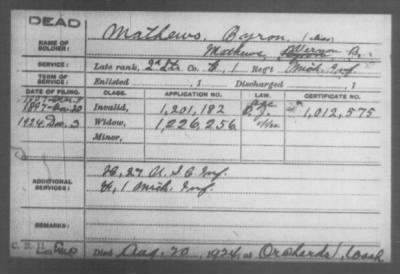 DEAD
NAME OF SOLDIER: Mathews, Byron, (alias)
Mathews, Vernon B.
SERVICE: Late rank, 2d Lt. Co. E, 1 Reg't Mich. Inf.
TERM OF SERVICE: Enlisted , 1 Discharged , 1
DATE OF FILING. CLASS. APPLICATION NO. LAW. CERTIFICATE NO.
1897 Invalid, 1,201,182 1,012,575
1924 Dec. 3 Widow, 1,226,256
Minor,
ADDITIONAL SERVICES: 27 U.S.C. Inf.
1 Mich. Inf.
REMARKS:
Died Aug. 20, 1924, at Orchards, Wash